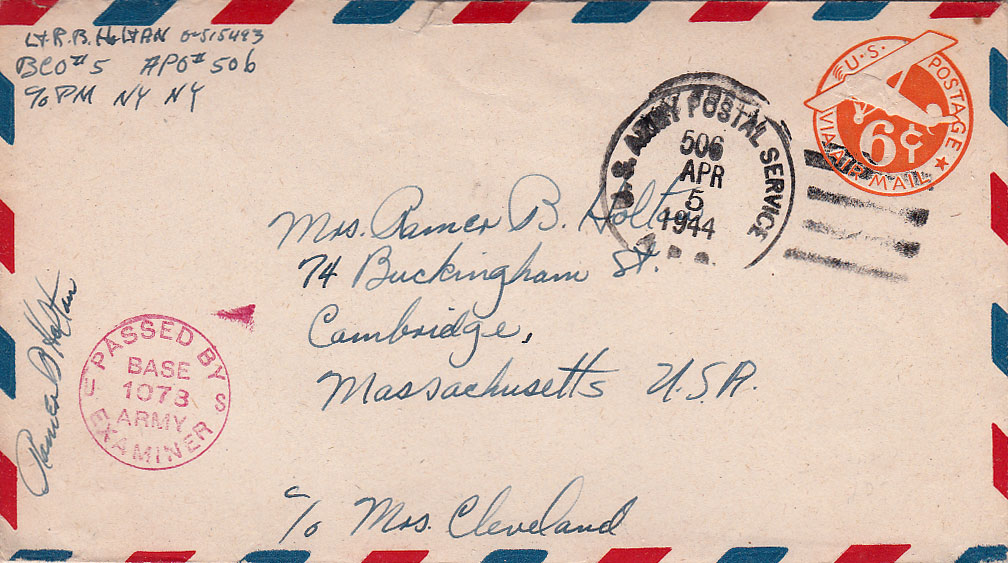 Lt R. B. Holtan O-515493
BCO #5 APO # 506
% PM NY NY
U.S. ARMY POSTAL SERVICE
506
APR
5
1944
U.S. POSTAGE
6¢
VIA AIR MAIL
Mrs. Ramer B. Holtan
74 Buckingham St.
Cambridge,
Massachusetts U.S.A.
Ramer B Holtan
PASSED BY
U S
BASE
1073
ARMY
EXAMINER
c/o Mrs. Cleveland